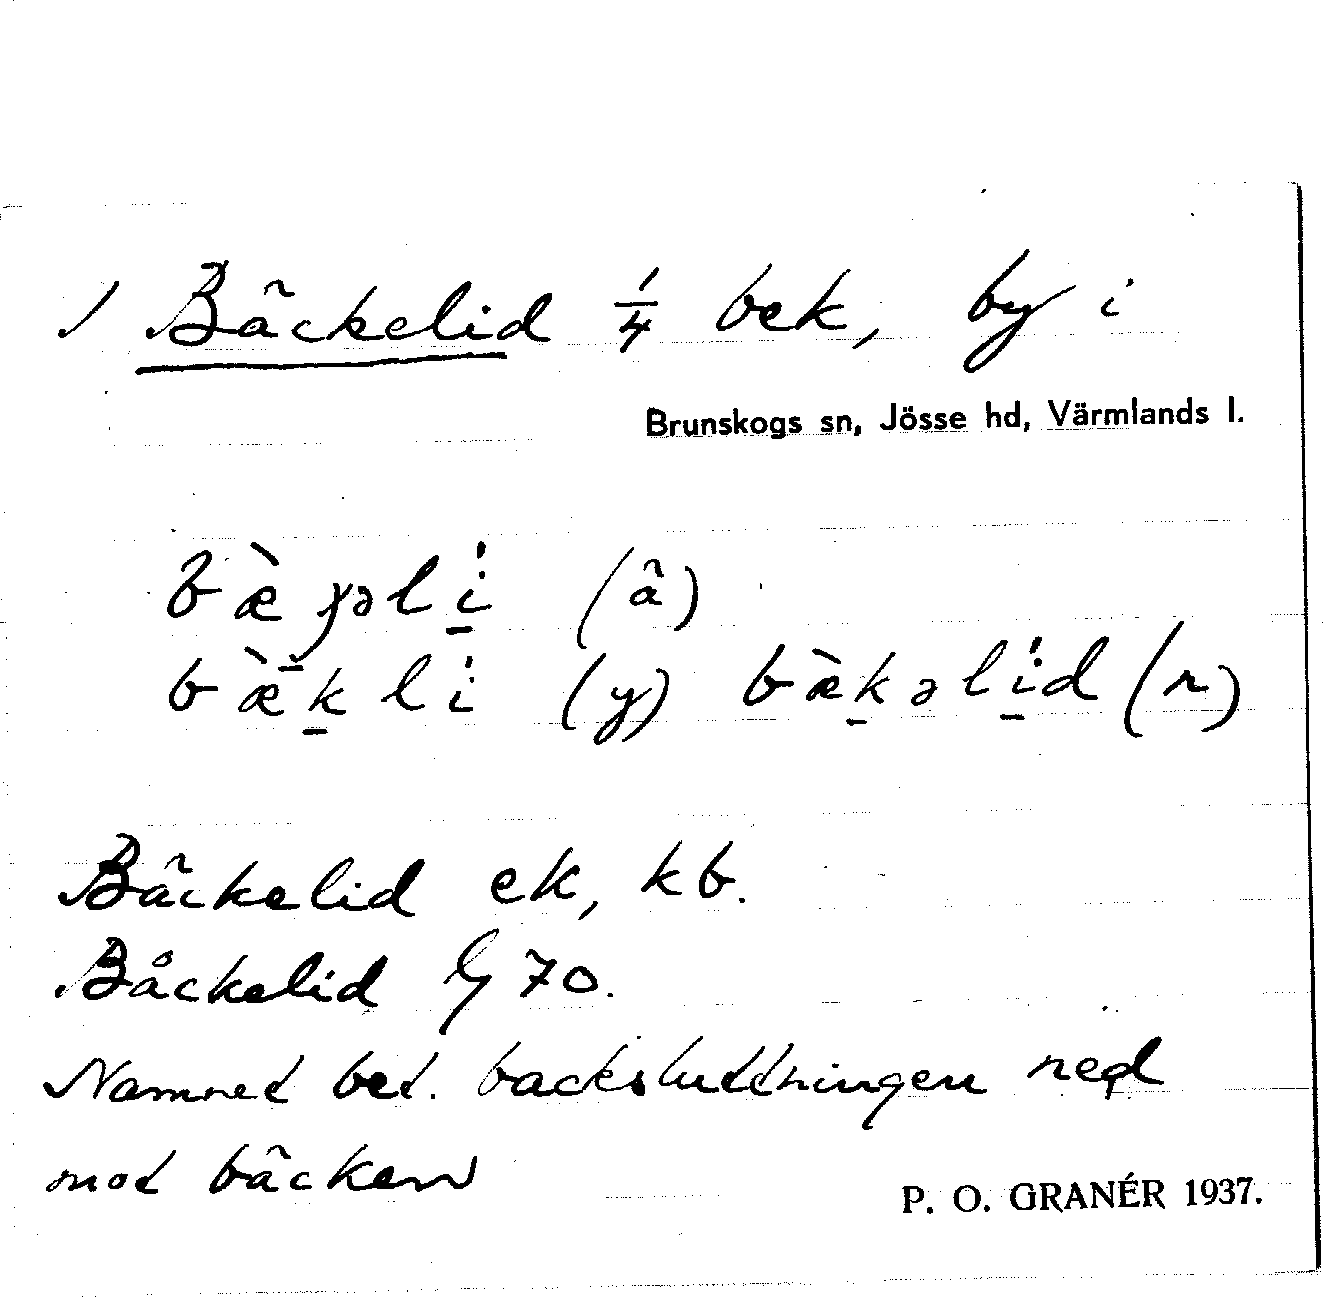 1 Bäckelid 1/4 bek, by i
Brunskogs sn, Jösse hd, Värmlands l.
(ä)
bæ̀k̲li (y) bæ̀k̲əli̲d (n)
Bäckelid ek, kb.
Båckelid G 70.
Namnet bet. backsluttningen ned
mot bäcken
P. O. GRANÉR 1937.